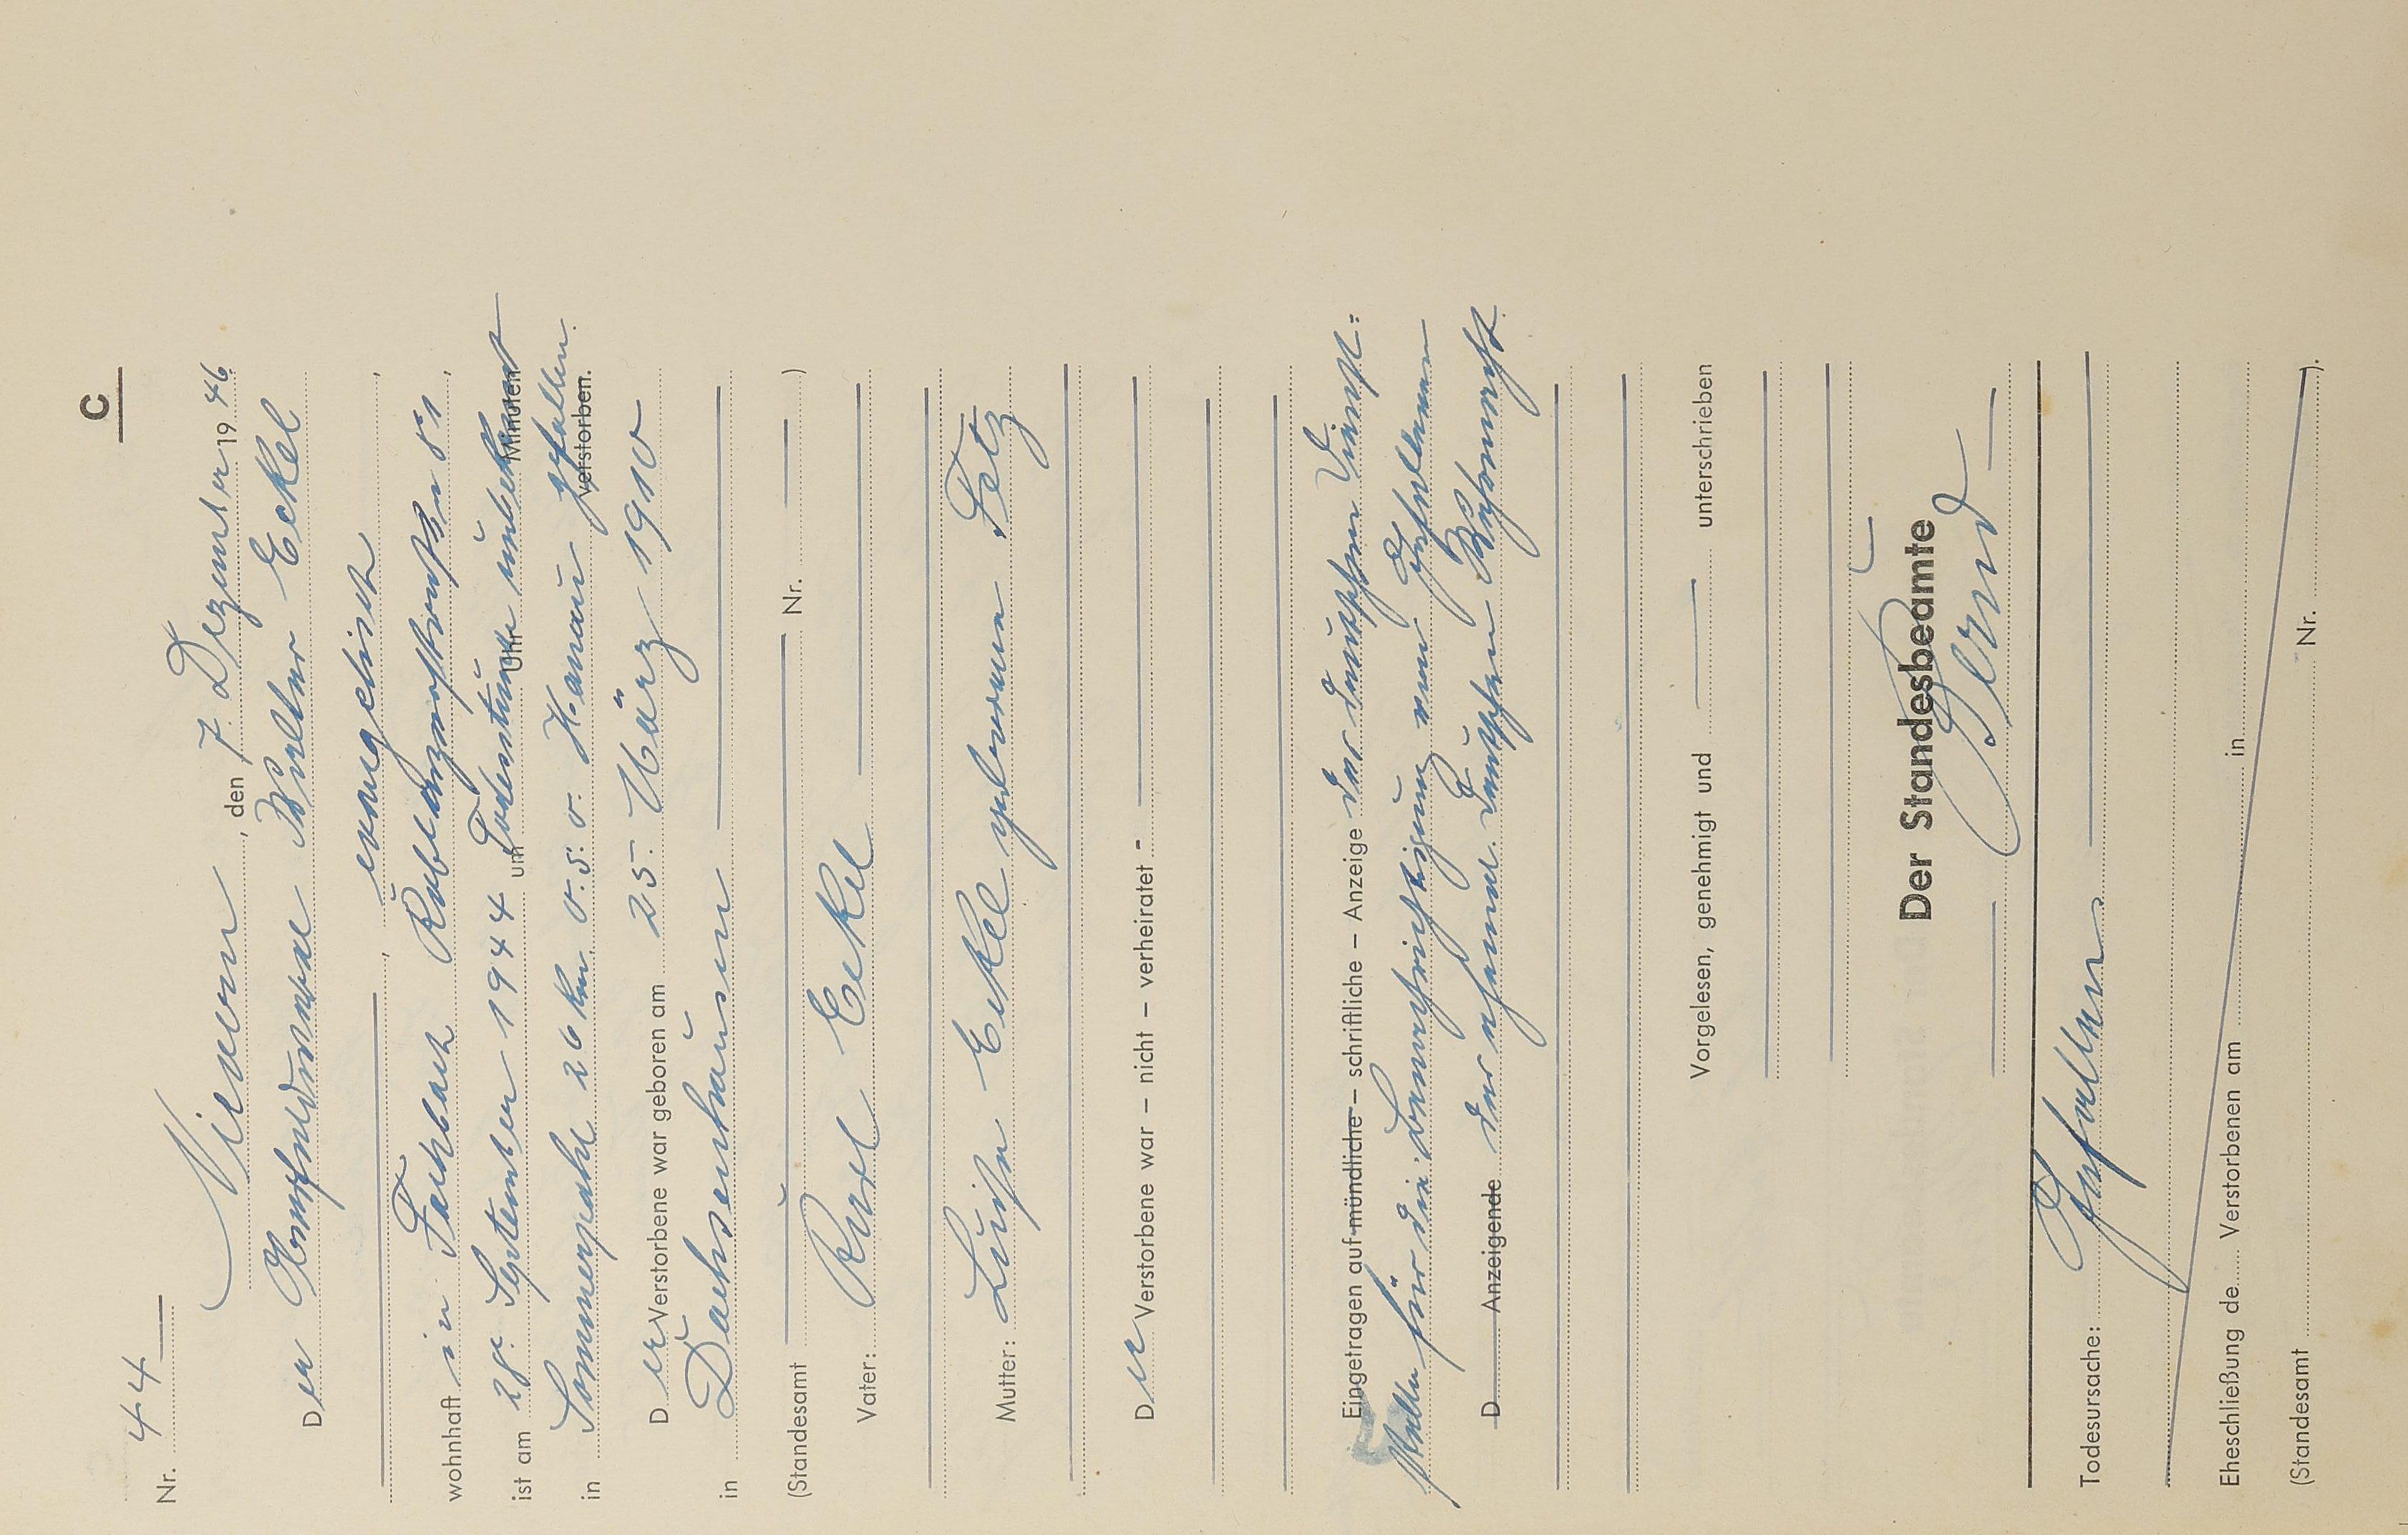 C
Nr. 44
Nievern, den 7. Dezember 1946
Der Obergefreite Walter Eckel
evangelisch
wohnhaft in Fachbach Koblenzerstraße 81
ist am 28. September 1944 um Todesstunde Uhr unbekannt Minuten
in Sommerpahl 26 km. O.S.O. Hanau gefallen. verstorben.
Der Verstorbene war geboren am 25. März 1910
in Dachsenhausen
(Standesamt Nr. )
Vater: Karl Eckel
Mutter: Luise Eckel geborene Fetz
Der Verstorbene war – nicht – verheiratet -
Eingetragen auf mündliche – schriftliche – Anzeige der deutschen Dienst-
stelle für die Benachrichtigung von Gefallenen
D Anzeigende der ehemal. deutschen Wehrmacht.
Vorgelesen, genehmigt und unterschrieben
Der Standesbeamte
Todesursache: Gefallen
Eheschließung de Verstorbenen am in
(Standesamt Nr. ).